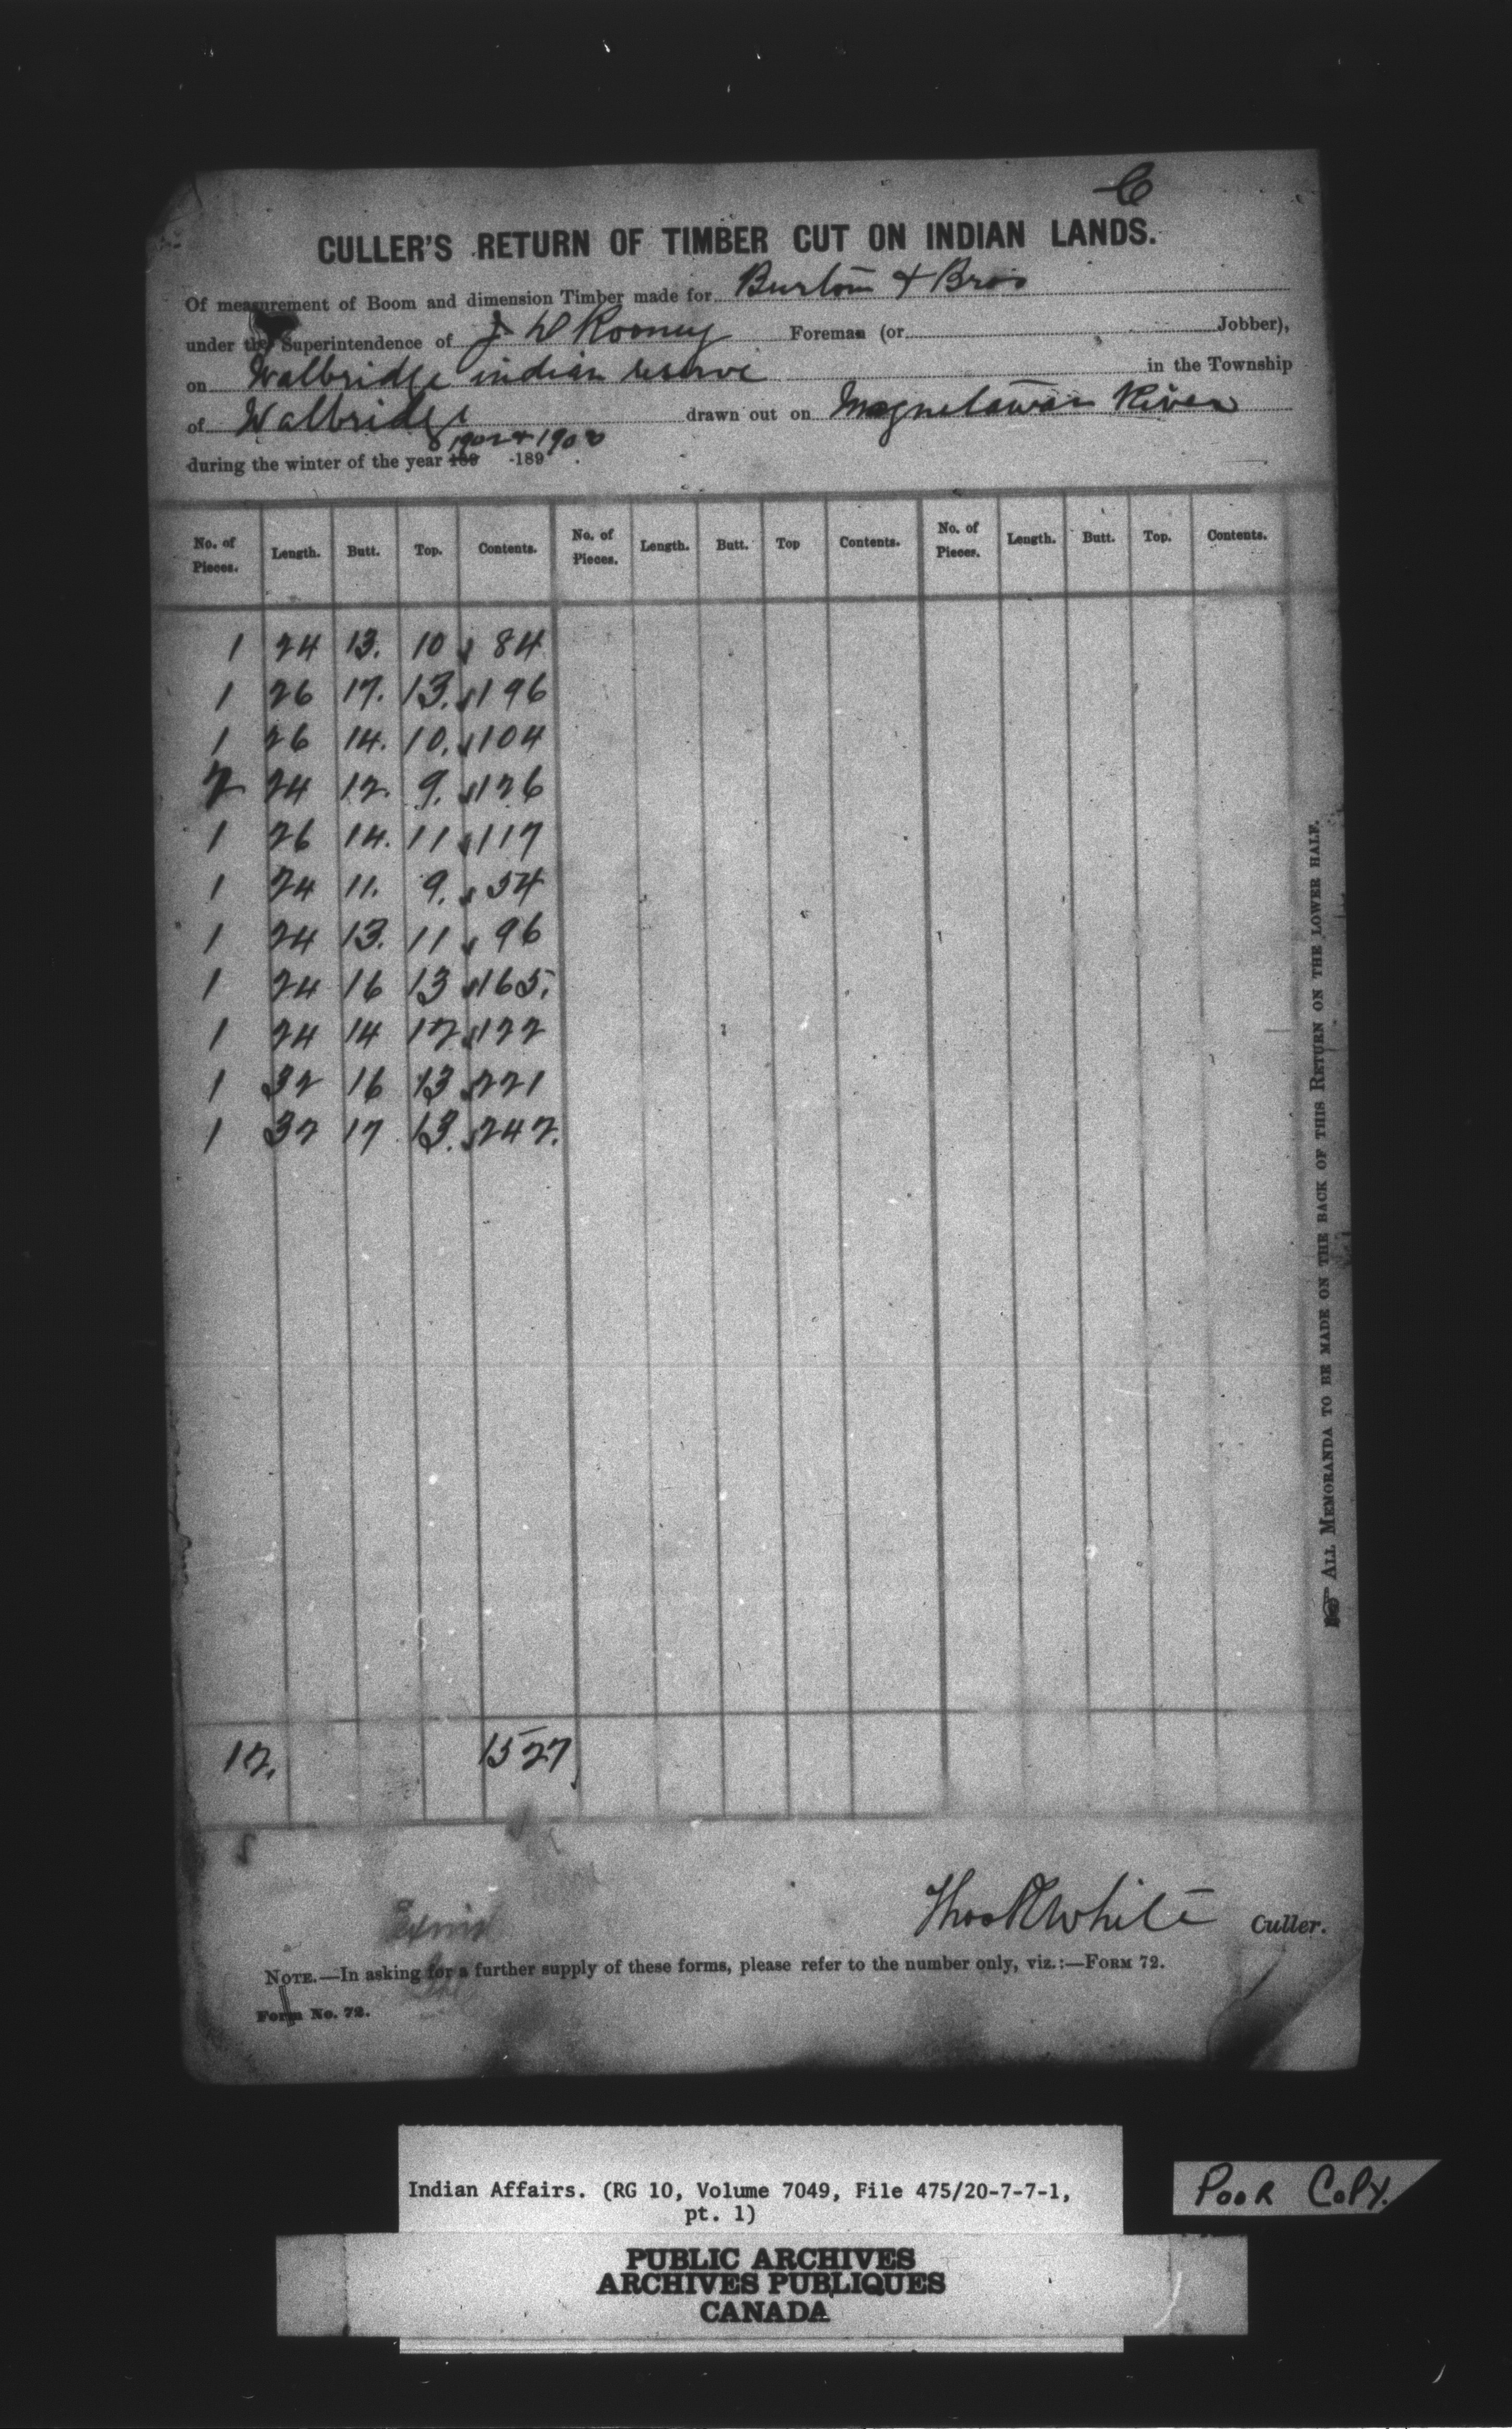 C
CULLER'S RETURN OF TIMBER CUT ON INDIAN LANDS.
Of measurement of Boom and dimension Timber made for Burton & Bros
under the Superintendence of J D Rooney Foreman (or Jobber),
on Walbridge indian reserve in the Township
of Walbridge drawn out on Magnetawan River
during the winter of the year 189 -189 . 1902 & 1903
No. of Pieces. Length. Butt. Top. Contents. No. of Pieces. Length. Butt. Top Contents. No. of Pieces. Length. Butt. Top. Contents.
1 24 13. 10 84
1 26 17. 13. 196
1 26 14. 10. 104
2 24 12. 9. 126
1 26 14. 11 117
1 24 11. 9. 54
1 24 13. 11 96
1 24 16 13 165.
1 24 14 12 122
1 32 16 13 221
1 32 17 13. 242.
12. 1527
Thos R White Culler.
NOTE.—In asking for a further supply of these forms, please refer to the number only, viz.:—FORM 72.
Form No. 72.
☞ ALL MEMORANDA TO BE MADE ON THE BACK OF THIS RETURN ON THE LOWER HALF.
Indian Affairs. (RG 10, Volume 7049, File 475/20-7-7-1,
pt. 1)
POOR COPY.
PUBLIC ARCHIVES
ARCHIVES PUBLIQUES
CANADA